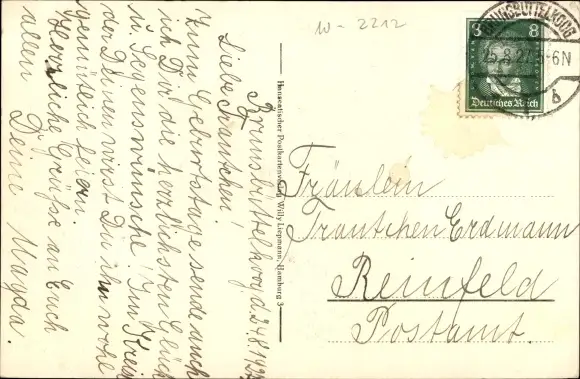 W-2212
BRUNSBÜTTELKOOG
25.8.27. 5-6N
b
8 8
Deutsches Reich
Hanseatischer Postkartenverlag Willy Liepmann, Hamburg 3
Brunsbüttelkoog d. 24.8.1927
Liebe Trautchen!
Zum Geburtstage sende auch
ich Dir die herzlichsten Glück
u. Segenswünsche! Im Kreise
der Deinen wirst Du ihn wohl
gemütlich feiern.
Herzliche Grüße an Euch
allen
Deine Magda.
Fräulein
Trautchen Erdmann
Reinfeld
Postamt.